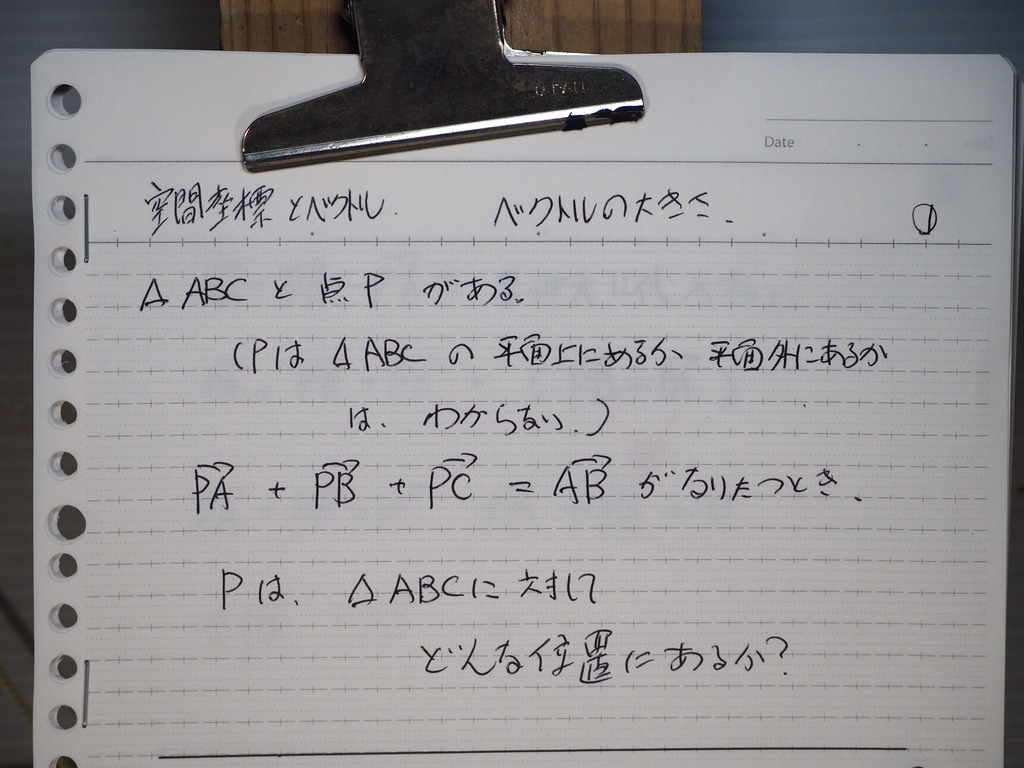 Date
空間座標とベクトル. ベクトルの大きさ. ①
△ABCと点Pがある。
(Pは△ABCの平面上にあるか 平面外にあるか
は、わからない.)
PA + PB + PC = AB がなりたつとき、
Pは、△ABCに対して
どんな位置にあるか?